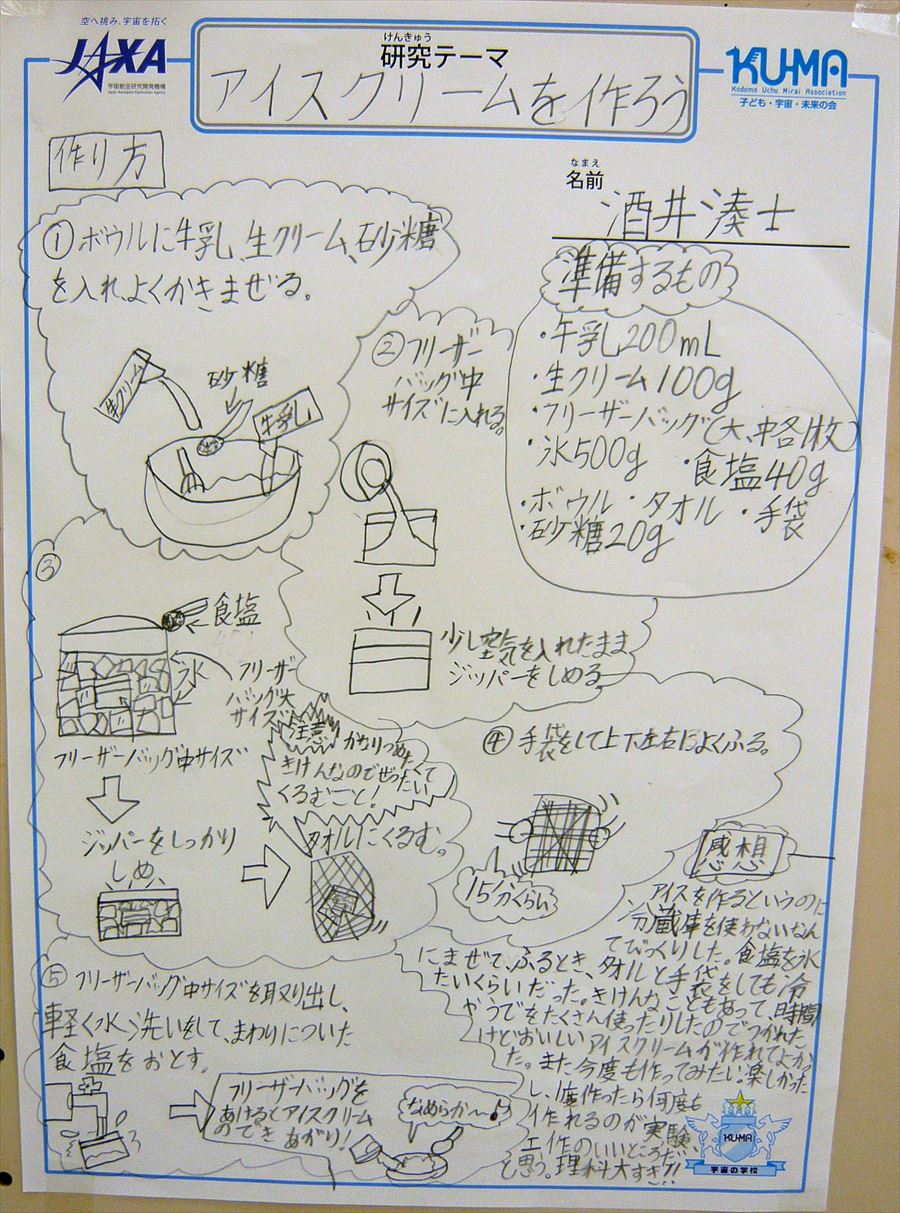 空へ挑み、宇宙を拓く
JAXA
宇宙航空研究開発機構
Japan Aerospace Exploration Agency
けんきゅう
研究テーマ
アイスクリームを作ろう
KU-MA
Kodomo Uchu Mirai Association
子ども・宇宙・未来の会
作り方
なまえ
名前
酒井湊士
①ボウルに牛乳、生クリーム、砂糖
を入れ、よくかきまぜる。
生クリーム
砂糖
牛乳
準備するもの
・牛乳200mL
・生クリーム100g
・フリーザーバッグ(大、中各1枚)
・氷500g ・食塩40g
・ボウル ・タオル ・手袋
・砂糖20g
②フリーザー
バッグ中
サイズに入れる。
少し空気を入れたまま
ジッパーをしめる
③
食塩
氷
フリーザー
バッグ大
サイズ
フリーザーバッグ中サイズ
ジッパーをしっかり
しめ、
注意
かなりつめたくて
きけんなのでぜったい
くるむこと!
タオルにくるむ。
④手袋をして上下左右によくふる。
15分くらい
⑤フリーザーバッグ中サイズを取り出し、
軽く水洗いをして、まわりについた
食塩をおとす。
フリーザーバッグを
あけるとアイスクリーム
のできあがり!
なめらか〜♪
感想
アイスを作るというのに
冷蔵庫を使わないなん
てびっくりした。食塩を氷
にまぜて、ふるとき、タオルと手袋をしても冷
たいくらいだった。きけんなこともあって、時間
がうでをたくさん使ったりしたのでつかれた
けどおいしいアイスクリームが作れてよかっ
た。また今度も作ってみたい。楽しかった
し、1度作ったら何度も
作れるのが実験、
工作のいいところだ
と思う。理科大すき!!
KU-MA
宇宙の学校